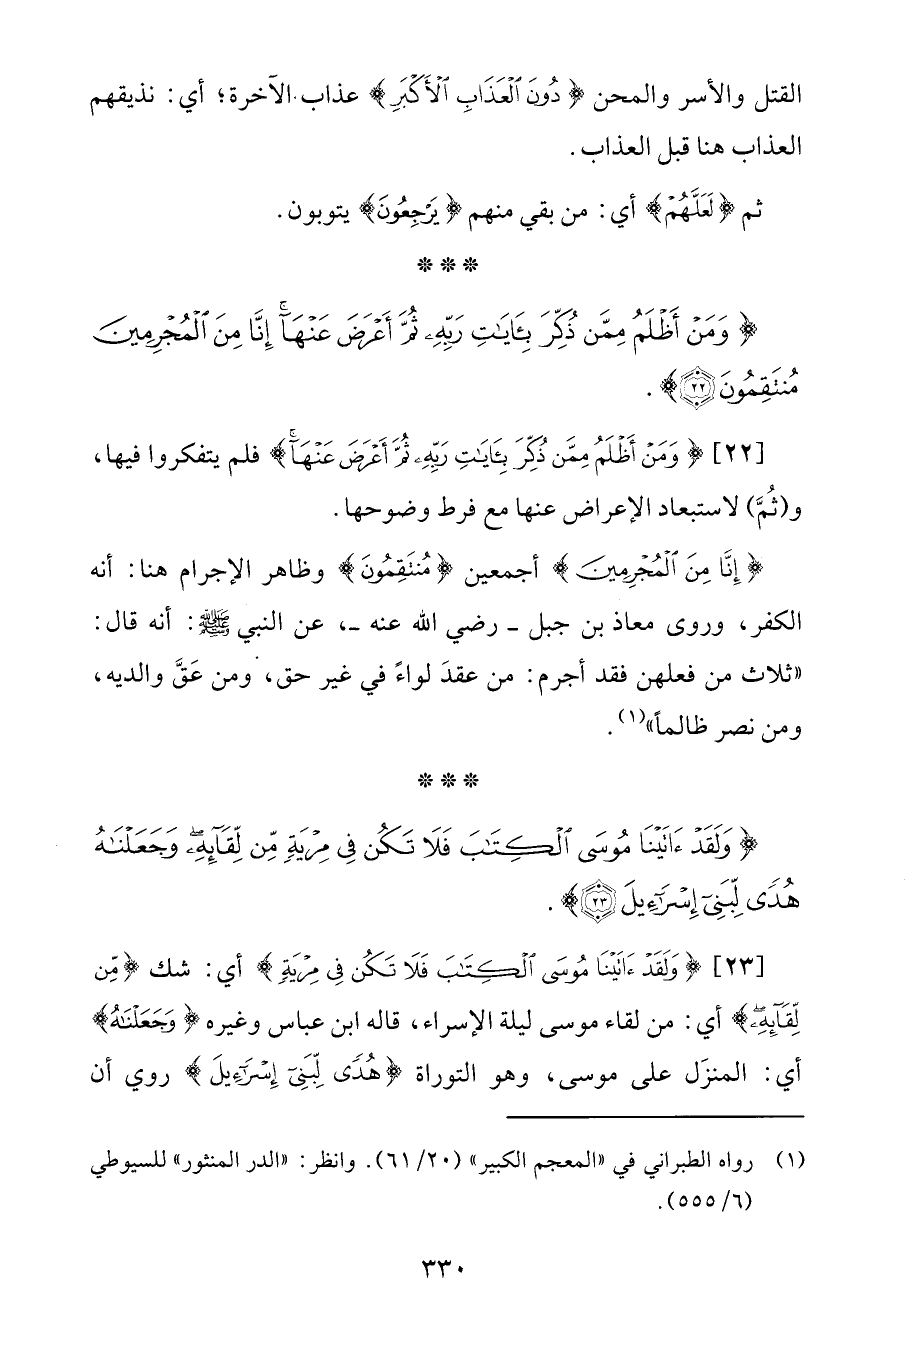 القتل والأسر والمحن ﴿دُونَ ٱلْعَذَابِ ٱلْأَكْبَرِ﴾ عذاب الآخرة؛ أي: نذيقهم
العذاب هنا قبل العذاب.
ثم ﴿لَعَلَّهُمْ﴾ أي: من بقي منهم ﴿يَرْجِعُونَ﴾ يتوبون.
* * *
﴿وَمَنْ أَظْلَمُ مِمَّن ذُكِّرَ بِـَٔايَـٰتِ رَبِّهِۦ ثُمَّ أَعْرَضَ عَنْهَآ ۚ إِنَّا مِنَ ٱلْمُجْرِمِينَ
مُنتَقِمُونَ ٢٢﴾.
[٢٢] ﴿وَمَنْ أَظْلَمُ مِمَّن ذُكِّرَ بِـَٔايَـٰتِ رَبِّهِۦ ثُمَّ أَعْرَضَ عَنْهَآ ۚ﴾ فلم يتفكروا فيها،
و(ثُمَّ) لاستبعاد الإعراض عنها مع فرط وضوحها.
﴿إِنَّا مِنَ ٱلْمُجْرِمِينَ﴾ أجمعين ﴿مُنتَقِمُونَ﴾ وظاهر الإجرام هنا: أنه
الكفر، وروى معاذ بن جبل ـ رضي الله عنه ـ، عن النبي ﷺ: أنه قال:
«ثلاث من فعلهن فقد أجرم: من عقدَ لواءً في غير حق، ومن عَقَّ والديه،
ومن نصر ظالماً»(١).
* * *
﴿وَلَقَدْ ءَاتَيْنَا مُوسَى ٱلْكِتَـٰبَ فَلَا تَكُن فِى مِرْيَةٍ مِّن لِّقَآئِهِۦ ۖ وَجَعَلْنَـٰهُ
هُدًى لِّبَنِىٓ إِسْرَٰٓءِيلَ ٢٣﴾.
[٢٣] ﴿وَلَقَدْ ءَاتَيْنَا مُوسَى ٱلْكِتَـٰبَ فَلَا تَكُن فِى مِرْيَةٍ﴾ أي: شك ﴿مِّن
لِّقَآئِهِۦ ۖ﴾ أي: من لقاء موسى ليلة الإسراء، قاله ابن عباس وغيره ﴿وَجَعَلْنَـٰهُ﴾
أي: المنزَل على موسى، وهو التوراة ﴿هُدًى لِّبَنِىٓ إِسْرَٰٓءِيلَ﴾ روي أن
(١) رواه الطبراني في «المعجم الكبير» (٢٠/ ٦١). وانظر: «الدر المنثور» للسيوطي
(٦/ ٥٥٥).
٣٣٠